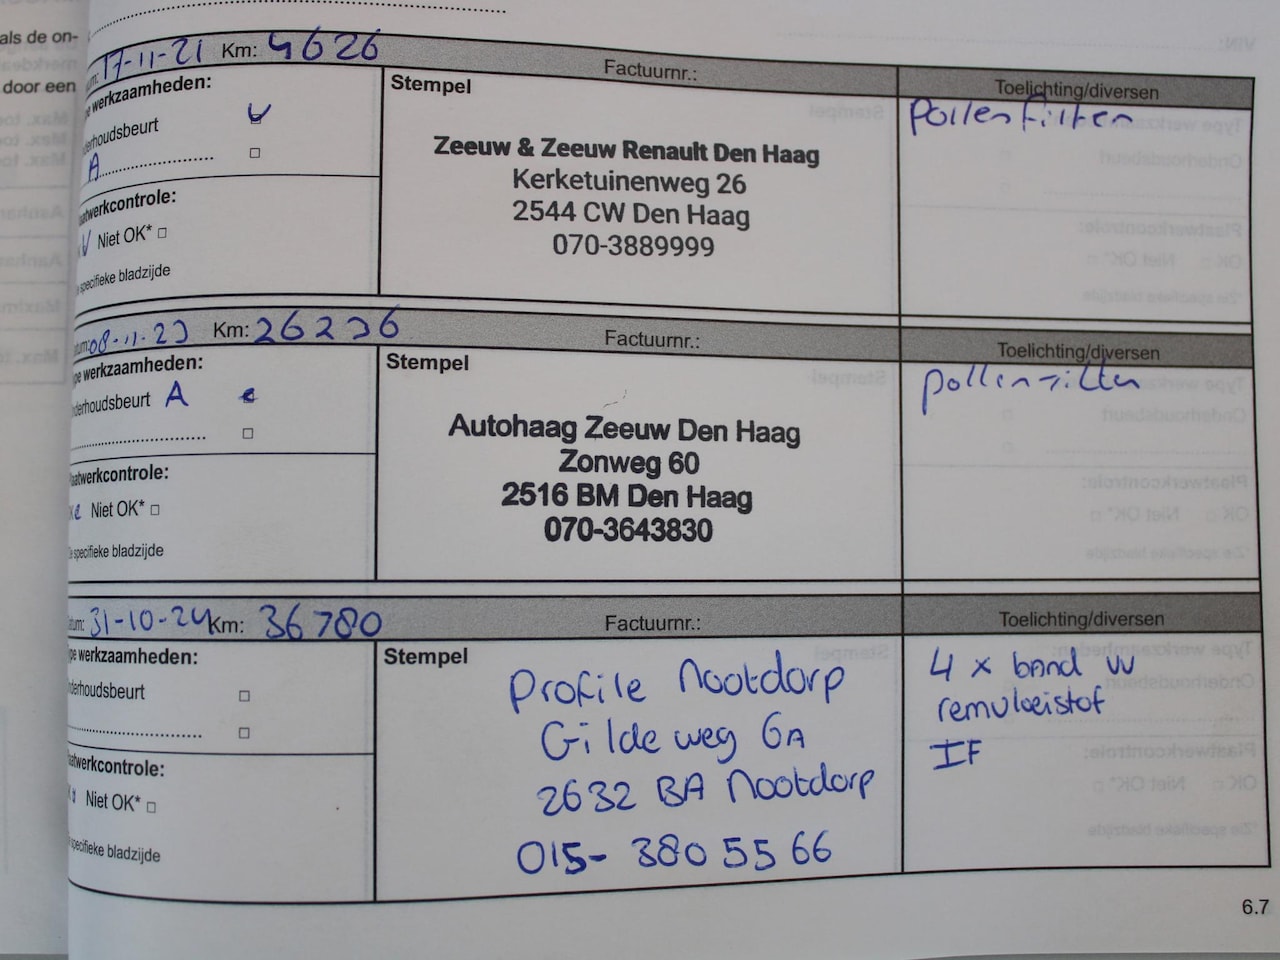 als de on-
door een
17-11-21 Km: 4626 Factuurnr.: Toelichting/diversen
werkzaamheden: Stempel pollenfilter
onderhoudsbeurt
A
Zeeuw & Zeeuw Renault Den Haag
Kerketuinenweg 26
2544 CW Den Haag
070-3889999
aatwerkcontrole:
Niet OK*
specifieke bladzijde
08-11-23 Km: 26236 Factuurnr.: Toelichting/diversen
pe werkzaamheden: Stempel pollenfilter
nderhoudsbeurt A
Autohaag Zeeuw Den Haag
Zonweg 60
2516 BM Den Haag
070-3643830
aatwerkcontrole:
Niet OK*
specifieke bladzijde
31-10-24 Km: 36780 Factuurnr.: Toelichting/diversen
pe werkzaamheden: Stempel
nderhoudsbeurt
Profile Nootdorp
Gildeweg 6A
2632 BA Nootdorp
015- 380 55 66
4 x band vv
remvloeistof
IF
aatwerkcontrole:
Niet OK*
specifieke bladzijde
6.7